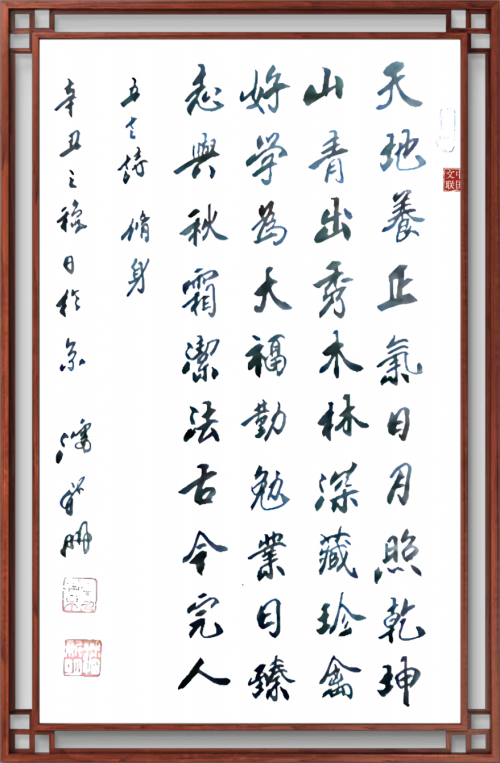 中国文联
天地養正氣日月照乾坤
山青出秀木林深藏珍禽
好学為大福勤勉業日臻
志與秋霜潔法古今完人
五言詩 脩身
辛丑之穐日於京 潘